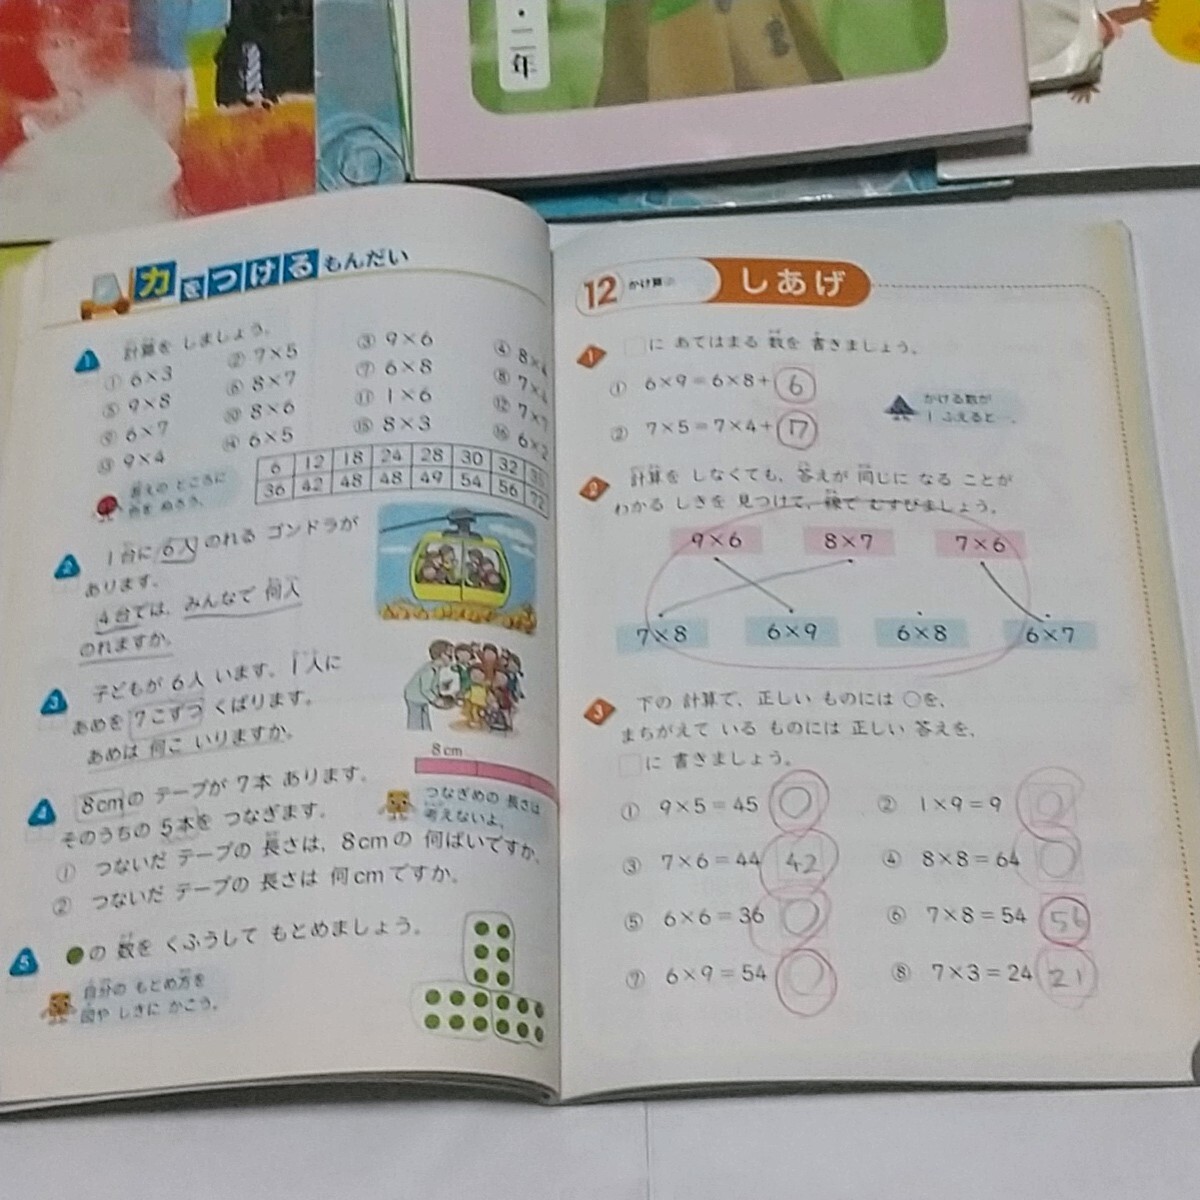 ・二年
力をつけるもんだい
1 計算を しましょう。
① 6×3 ② 7×5 ③ 9×6 ④
⑤ 9×8 ⑥ 8×7 ⑦ 6×8 ⑧
⑨ 6×7 ⑩ 8×6 ⑪ 1×6 ⑫
⑬ 9×4 ⑭ 6×5 ⑮ 8×3 ⑯
答えの ところに
色を ぬろう。
6 12 18 24 28 30 32
36 42 48 48 49 54 56 72
2 1台に 6人 のれる ゴンドラが
あります。
4台では、みんなで 何人
のれますか。
3 子どもが 6人 います。1人に
あめを 7こずつ くばります。
あめは 何こ いりますか。
8cm
4 8cmの テープが 7本 あります。
そのうちの 5本を つなぎます。
つなぎめの 長さは
考えないよ。
① つないだ テープの 長さは、8cmの 何ばいですか。
② つないだ テープの 長さは 何cmですか。
5 ●の 数を くふうして もとめましょう。
自分の もとめ方を
図や しきに かこう。
12 かけ算② しあげ
1 □に あてはまる 数を 書きましょう。
① 6×9=6×8+6
② 7×5=7×4+17
かける数が
1 ふえると…。
2 計算を しなくても、答えが 同じに なる ことが
わかる しきを 見つけて、線で むすびましょう。
9×6 8×7 7×6
7×8 6×9 6×8 6×7
3 下の 計算で、正しい ものには ○を、
まちがえて いる ものには 正しい 答えを、
□に 書きましょう。
① 9×5=45 ○ ② 1×9=9 ○
③ 7×6=44 42 ④ 8×8=64 ○
⑤ 6×6=36 ○ ⑥ 7×8=54 56
⑦ 6×9=54 ○ ⑧ 7×3=24 21